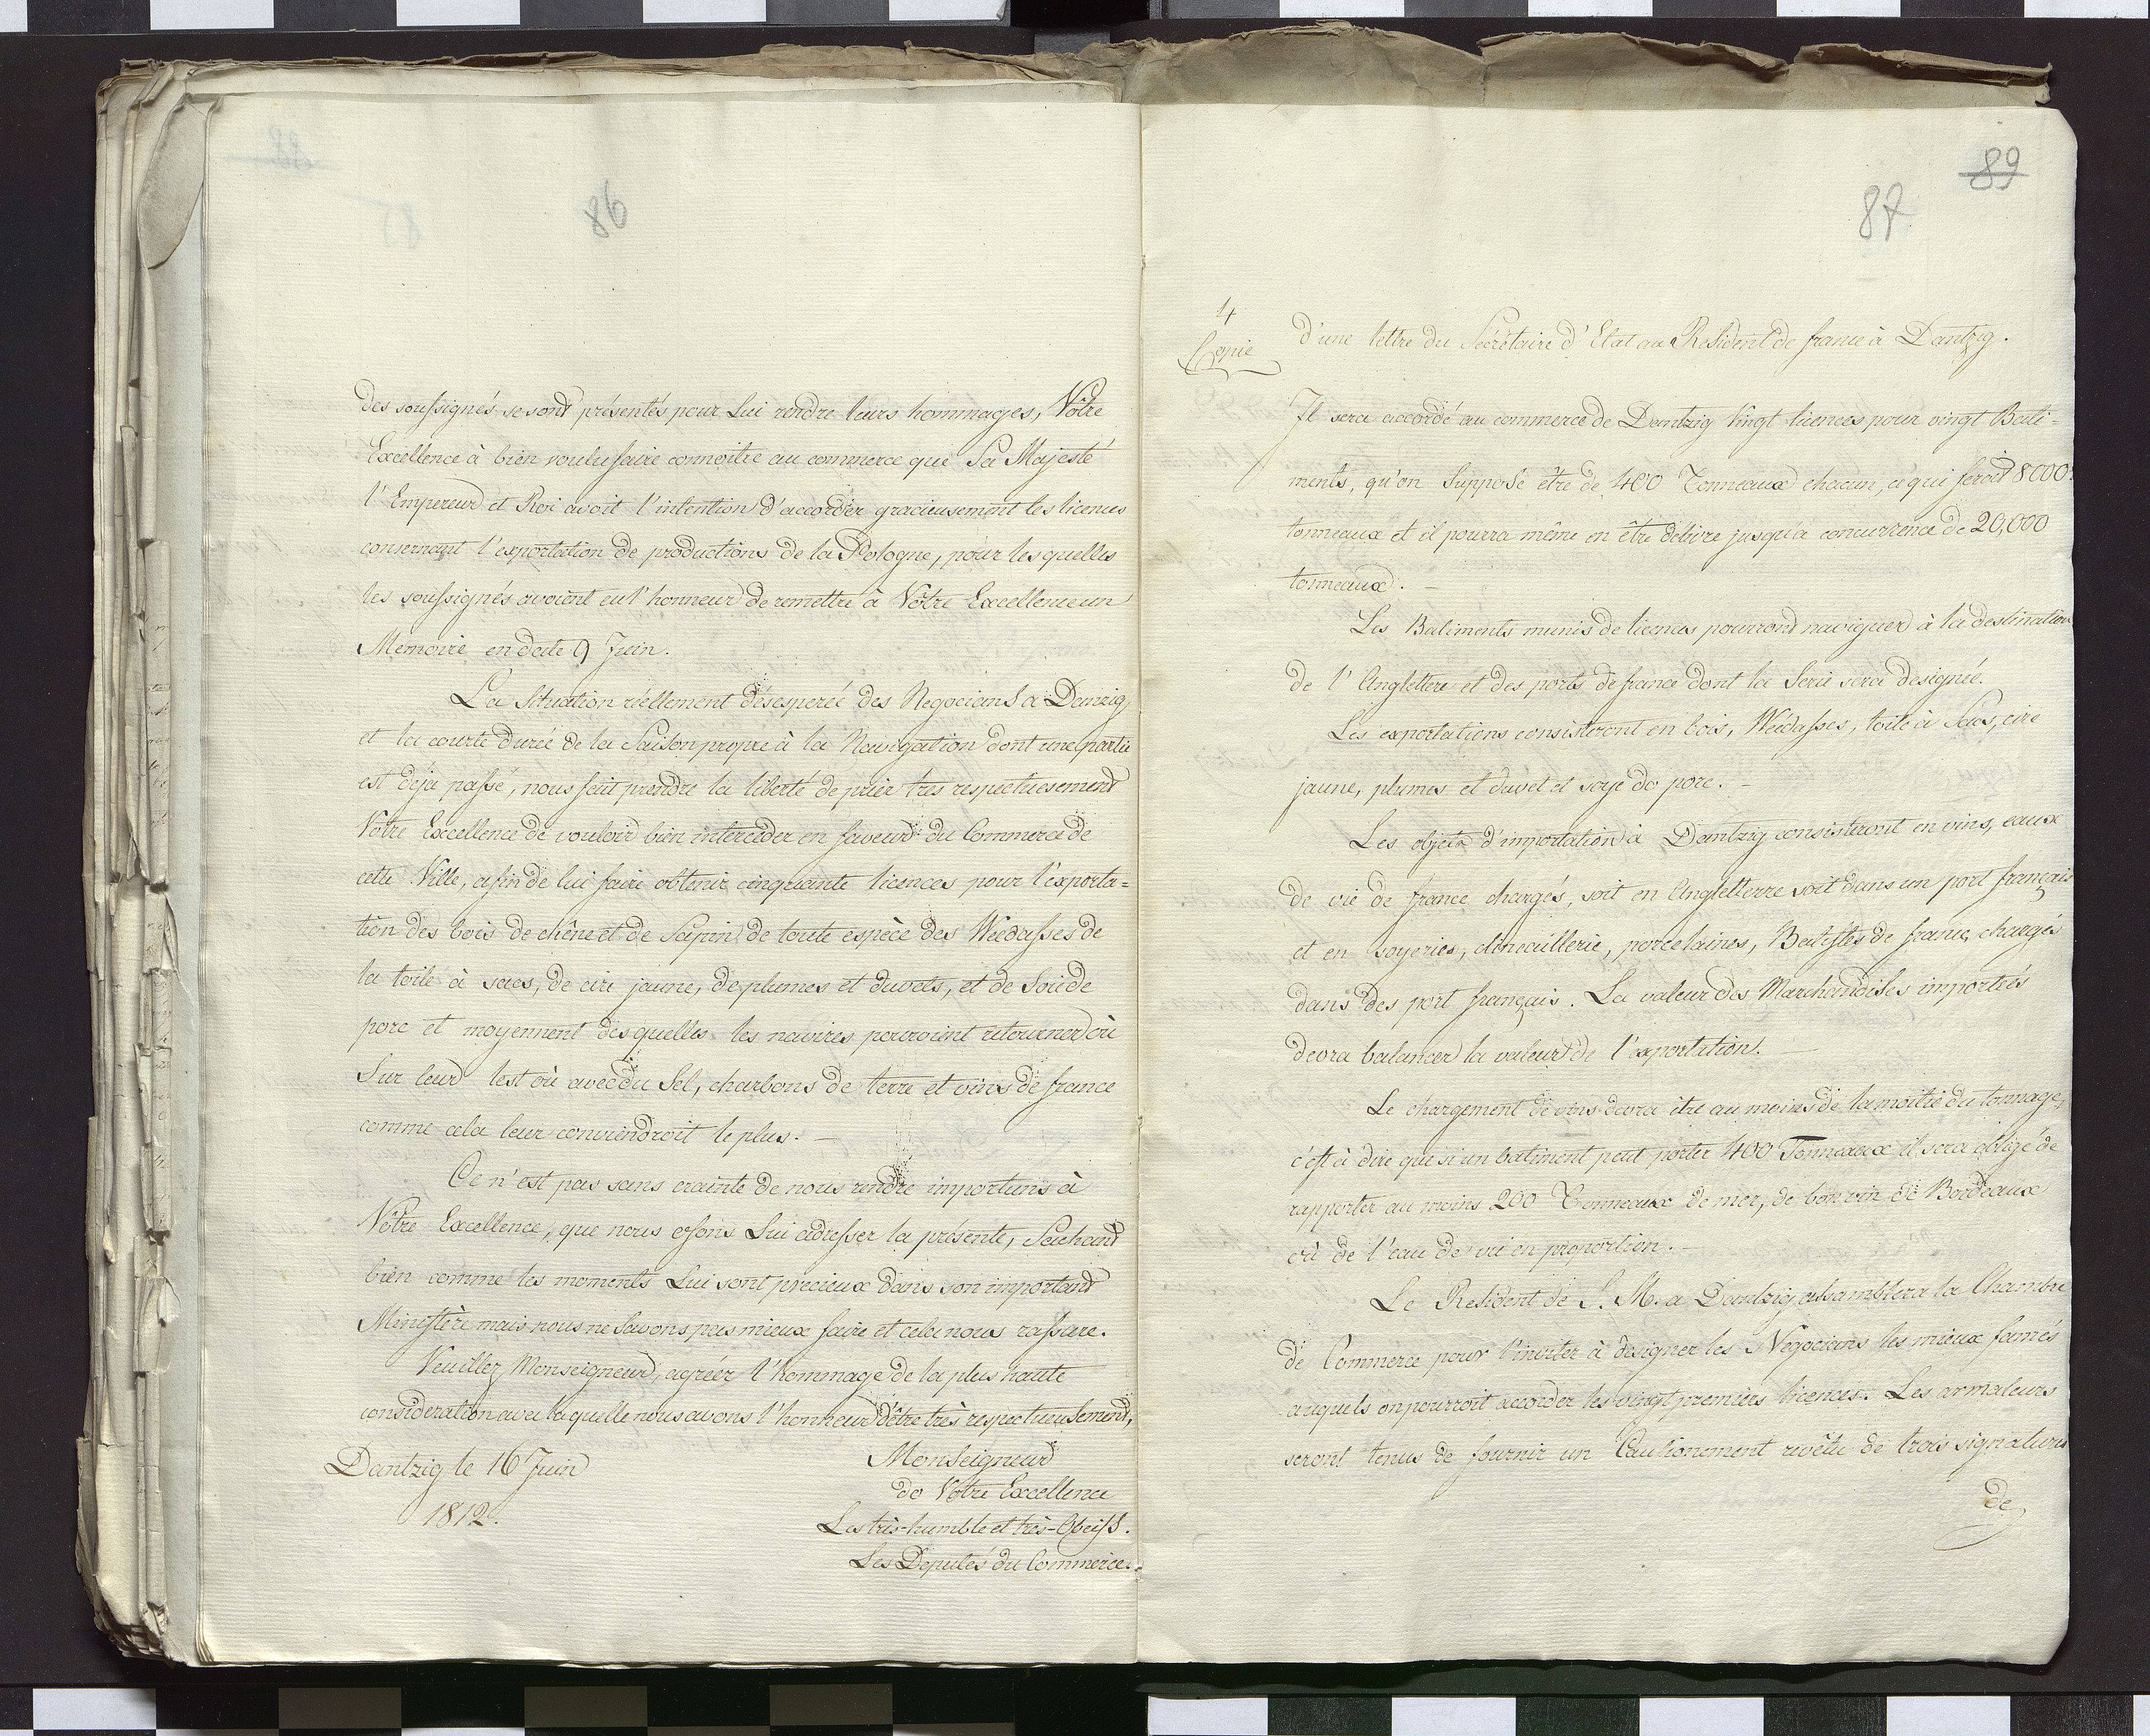 86
des soussignés se sont présentés pour Lui rendre leurs hommages, Vôtre
Excellence à bien voulu faire connoitre au commerce que Sa Majesté
l'Empereur et Roi avoit l'intention d'accorder gracieusement les licences
consernant l'exportation de productions de la Pologne, pour lesquelles
les soussignés avoient eu l'honneur de remettre à Vôtre Excellence un
Memoire en date 9 Juin.
La Situation réellement désesperée des Negocians a Danzig
et la courte durée de la Saison propre à la Navigation dont une partie
est déja passé, nous fait prendre la liberté de prier tres respectuesement
Votre Excellence de vouloir bien interceder en faveur du Commerce de
cette Ville, afin de lui faire obtenir cinquante licences pour l'exporta=
tion des bois de chêne et de Sapin de toute espèce des Weedasses de
la toile à sacs, de cire jaune, de plumes et duvets, et de Soie de
porc et moyennent desquelles les navires pourroient retourner où
Sur leur lest où avec du Sel, charbons de terre et vins de france
comme cela leur conviendroit le plus. —
Ce n'est pas sans crainte de nous rendre importuns à
Vôtre Excellence, que nous osons Lui adresser la présente, Sachant
bien comme les moments Lui sont precieux dans son important
Ministère mais nous ne Savons pas mieux faire et cela nous rassure.
Veuillez Monseigneur, agréér l'hommage de la plus haute
consideration avec laquelle nous avons l'honneur d'être très respectueusement,
Dantzig le 16 Juin
1812.
Monseigneur
de Votre Excellence
Les très-humble et très-Obeiss.
Les Deputés du Commerce.
89
87
4
Copie
d'une lettre du Sécrétaire d'Etat au Resident de france à Dantzig.
Il sera accordé au commerce de Dantzig Vingt licences pour vingt Bati=
ments, qu'on Supposé être de 400 Tonneaux chacun, ce qui feroit 8000
tonneaux et il pourra même en être délivré jusqu'à concurrence de 20,000
tonneaux. —
Les Batiments munis de licences pourront naviguer à la destination
de l'Angletterre et des ports de france dont la Serie sera designée.
Les exportations consisteront en bois, Weedasses, toile à Sacs, cire
jaune, plumes et duvet et soye de porc. —
Les objets d'importation à Dantzig consisteront en vins, eaux
de vie de france chargés, soit en Angletterre soit dans un port français
et en soyeries, clincaillerie, porcelaines, Batistes de france, chargés
dans des port français. La valeur des Marchandises importés
devra balancer la valeur de l'exportation.
Le chargement de vins devra être au moins de la moitié du tonnage,
c'est à dire que si un batiment peut porter 400 Tonneaux il sera obligé de
rapporter au moins 200 Tonneaux de mer, de bon vin de Bordeaux
où de l'eau de vie en proportion. —
Le Resident de S. M. a Dantzig assamblera la Chambre
de Commerce pour l'inviter à designer les Négocians les mieux famés
auquels on pourroit accorder les vingt premiers licences. Les armateurs
seront tenus de fournir un Cautionement revêtu de trois signatures
de